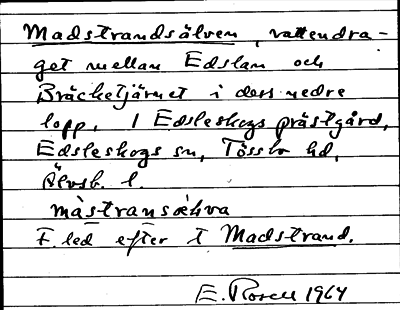 Madstrandsälven, vattendra-
get mellan Edslan och
Bräcketjärnet i dess nedre
lopp, I Edsleskogs prästgård,
Edsleskogs sn, Tössbo hd,
Älvsb. l.
mástransælva
F. led efter T Madstrand.
E. Rosell 1964